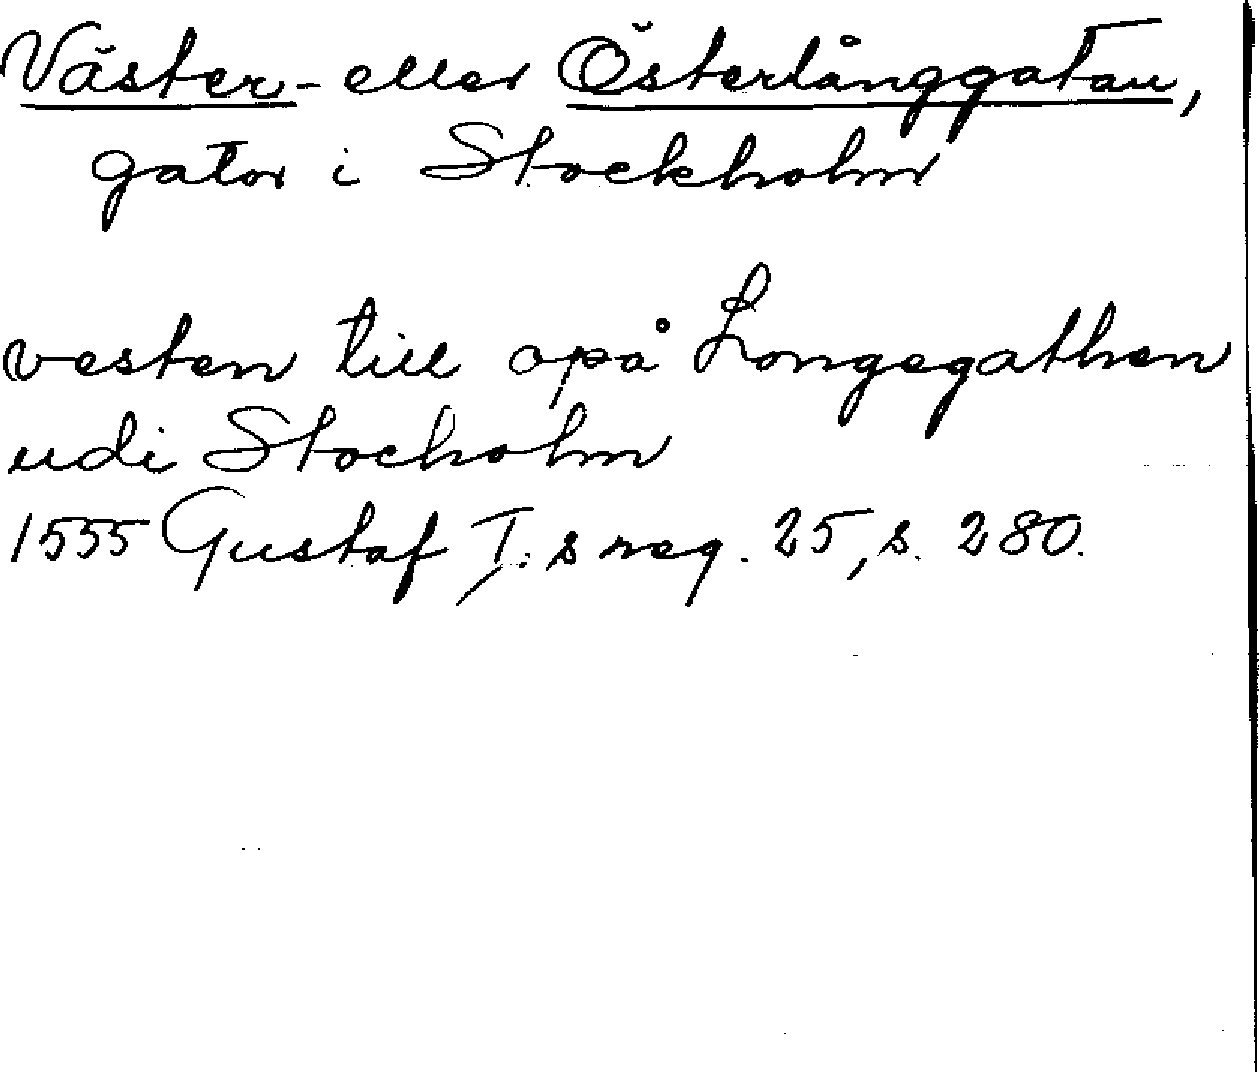 Väster- eller Österlånggatan,
gator i Stockholm
vesten till opå Longegathen
udi Stocholm
1555 Gustaf I:s reg. 25, s. 280.